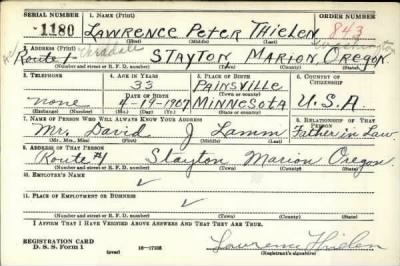 SERIAL NUMBER 1. NAME (Print) ORDER NUMBER
1180 LAWRENCE PETER THIELEN 843
(First) (Middle) (Last)
2. ADDRESS (Print)
Route 1 STAYTON MARION, OREGON
(Number and street or R. F. D. number) (Town) (County) (State)
3. TELEPHONE 4. AGE IN YEARS 5. PLACE OF BIRTH 6. COUNTRY OF CITIZENSHIP
33 PAINSVILLE
DATE OF BIRTH (Town or county)
none 4-19-1907 MINNESOTA U.S.A
(Exchange) (Number) (Mo.) (Day) (Yr.) (State or country)
7. NAME OF PERSON WHO WILL ALWAYS KNOW YOUR ADDRESS 8. RELATIONSHIP OF THAT PERSON
Mr. David J Lamm Father in Law
(Mr., Mrs., Miss) (First) (Middle) (Last)
9. ADDRESS OF THAT PERSON
Route #1 Stayton Marion Oregon
(Number and street or R. F. D. number) (Town) (County) (State)
10. EMPLOYER'S NAME
✓
11. PLACE OF EMPLOYMENT OR BUSINESS
✓
(Number and street or R. F. D. number) (Town) (County) (State)
I AFFIRM THAT I HAVE VERIFIED ABOVE ANSWERS AND THAT THEY ARE TRUE.
REGISTRATION CARD
D. S. S. Form 1 (over) Lawrence Thielen
(Registrant's signature)